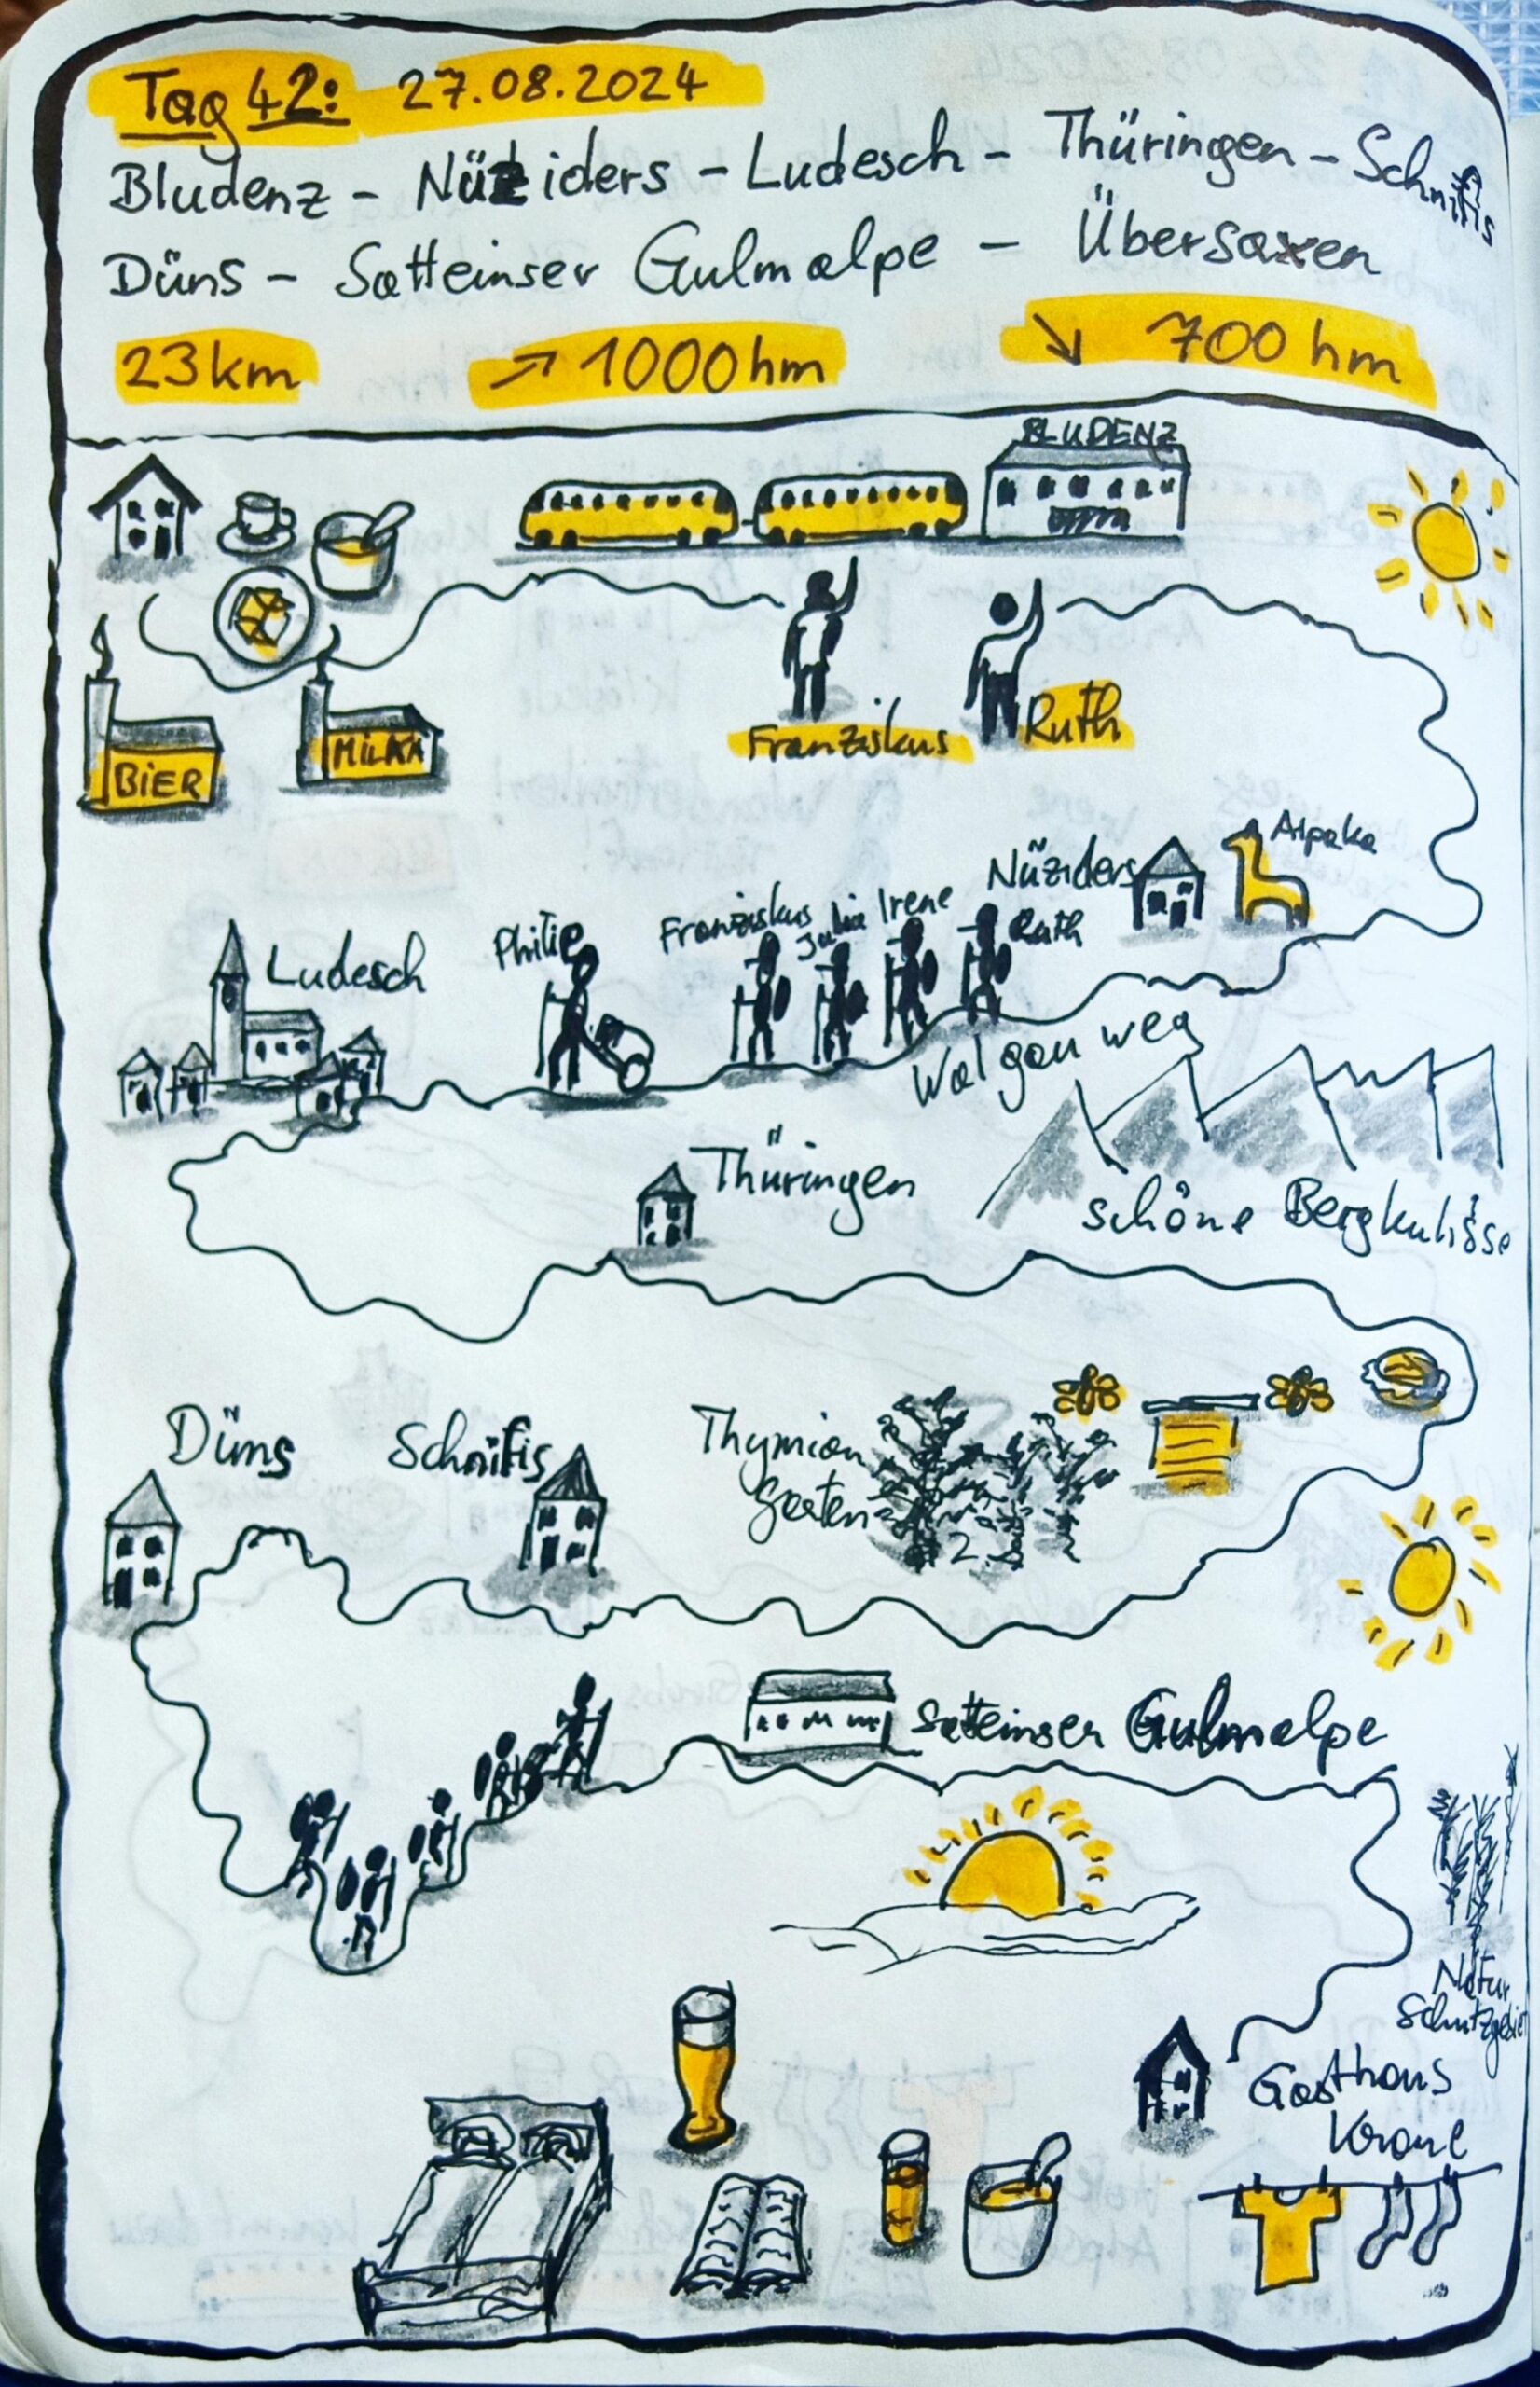 Tag 42: 27.08.2024
Bludenz - Nüziders - Ludesch - Thüringen - Schnifis
Düns - Satteinser Gulmalpe - Übersaxen
23km ↗ 1000hm ↘ 700 hm
BLUDENZ
BIER
MILKA
Franziskus
Ruth
Alpaka
Nüziders
Philip
Franziskus
Julia
Irene
Ruth
Ludesch
Walgauweg
Thüringen
schöne Bergkulisse
Düns
Schnifis
Thymian
Garten
Satteinser Gulmalpe
Natur
Schutzgebiet
Gasthaus
Krone